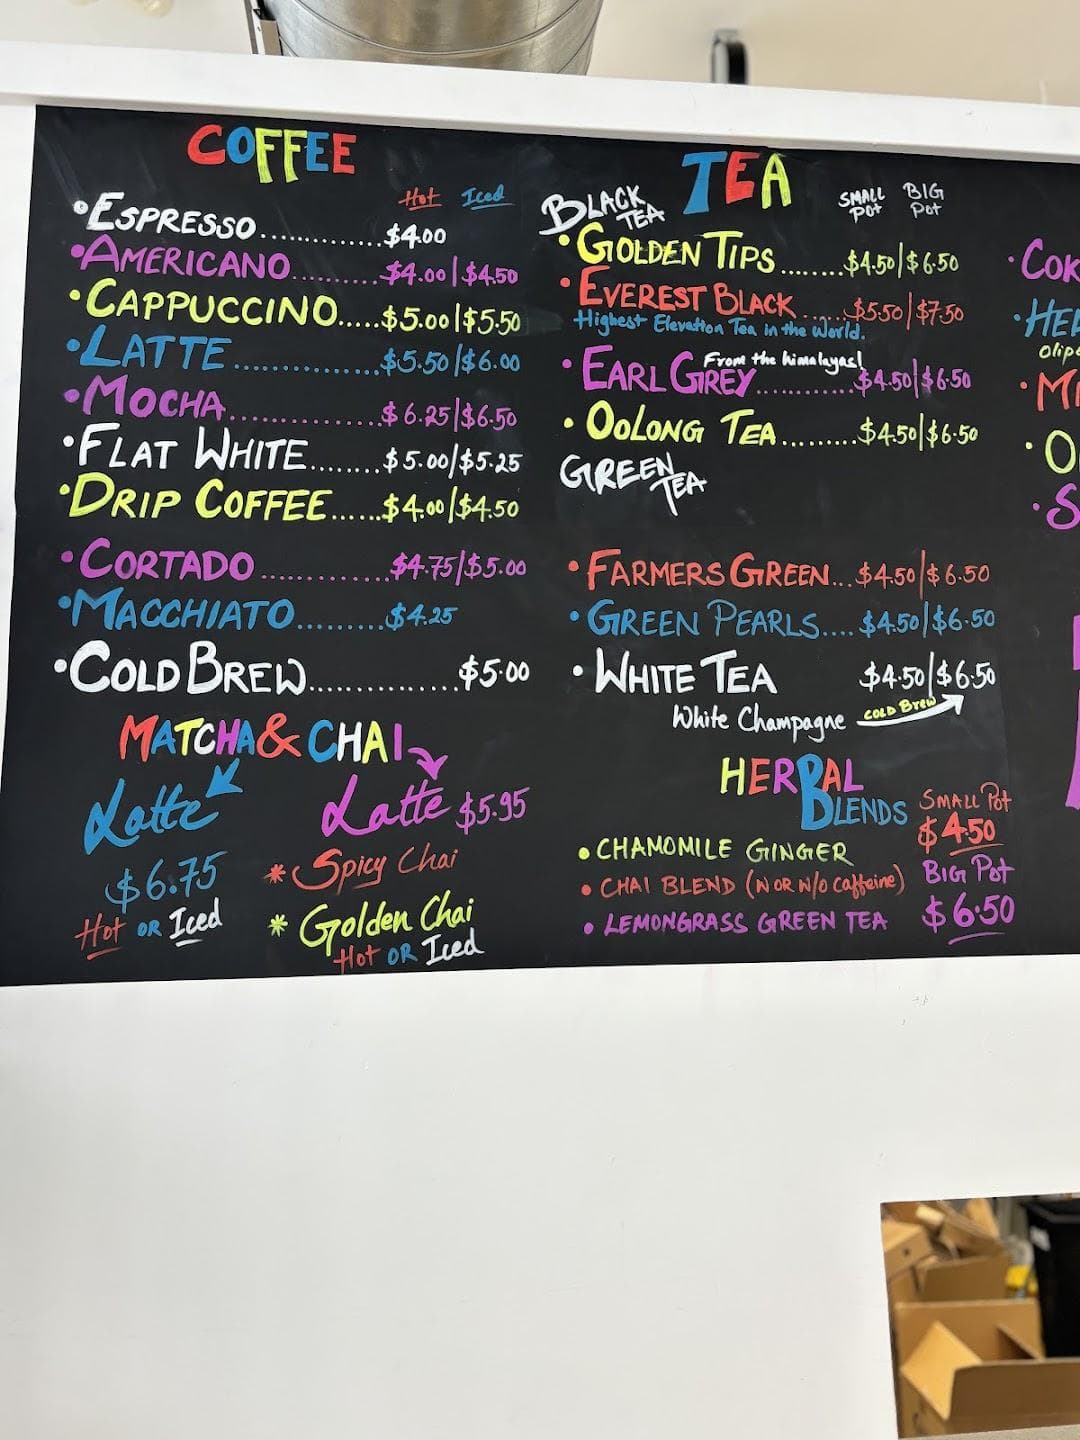 COFFEE
Hot Iced
•ESPRESSO..............$4.00
•AMERICANO.........$4.00|$4.50
•CAPPUCCINO.....$5.00|$5.50
•LATTE................$5.50|$6.00
•MOCHA................$6.25|$6.50
•FLAT WHITE........$5.00/$5.25
•DRIP COFFEE......$4.00|$4.50
•CORTADO..............$4.75/$5.00
•MACCHIATO.........$4.25
•COLD BREW..............$5.00
MATCHA & CHAI
Latte
$6.75
Hot OR Iced
Latte $5.95
* Spicy Chai
* Golden Chai
Hot OR Iced
TEA
SMALL Pot BIG Pot
BLACK TEA
•GOLDEN TIPS.......$4.50|$6.50
•EVEREST BLACK.......$5.50|$7.50
Highest Elevation Tea in the World.
From the himalayas!
•EARL GREY............$4.50|$6.50
•OOLONG TEA.........$4.50|$6.50
GREEN TEA
•FARMERS GREEN...$4.50|$6.50
•GREEN PEARLS....$4.50|$6.50
•WHITE TEA $4.50|$6.50
White Champagne COLD BREW
HERBAL BLENDS
•CHAMOMILE GINGER
•CHAI BLEND (W OR W/O caffeine)
•LEMONGRASS GREEN TEA
SMALL Pot
$4.50
BIG Pot
$6.50